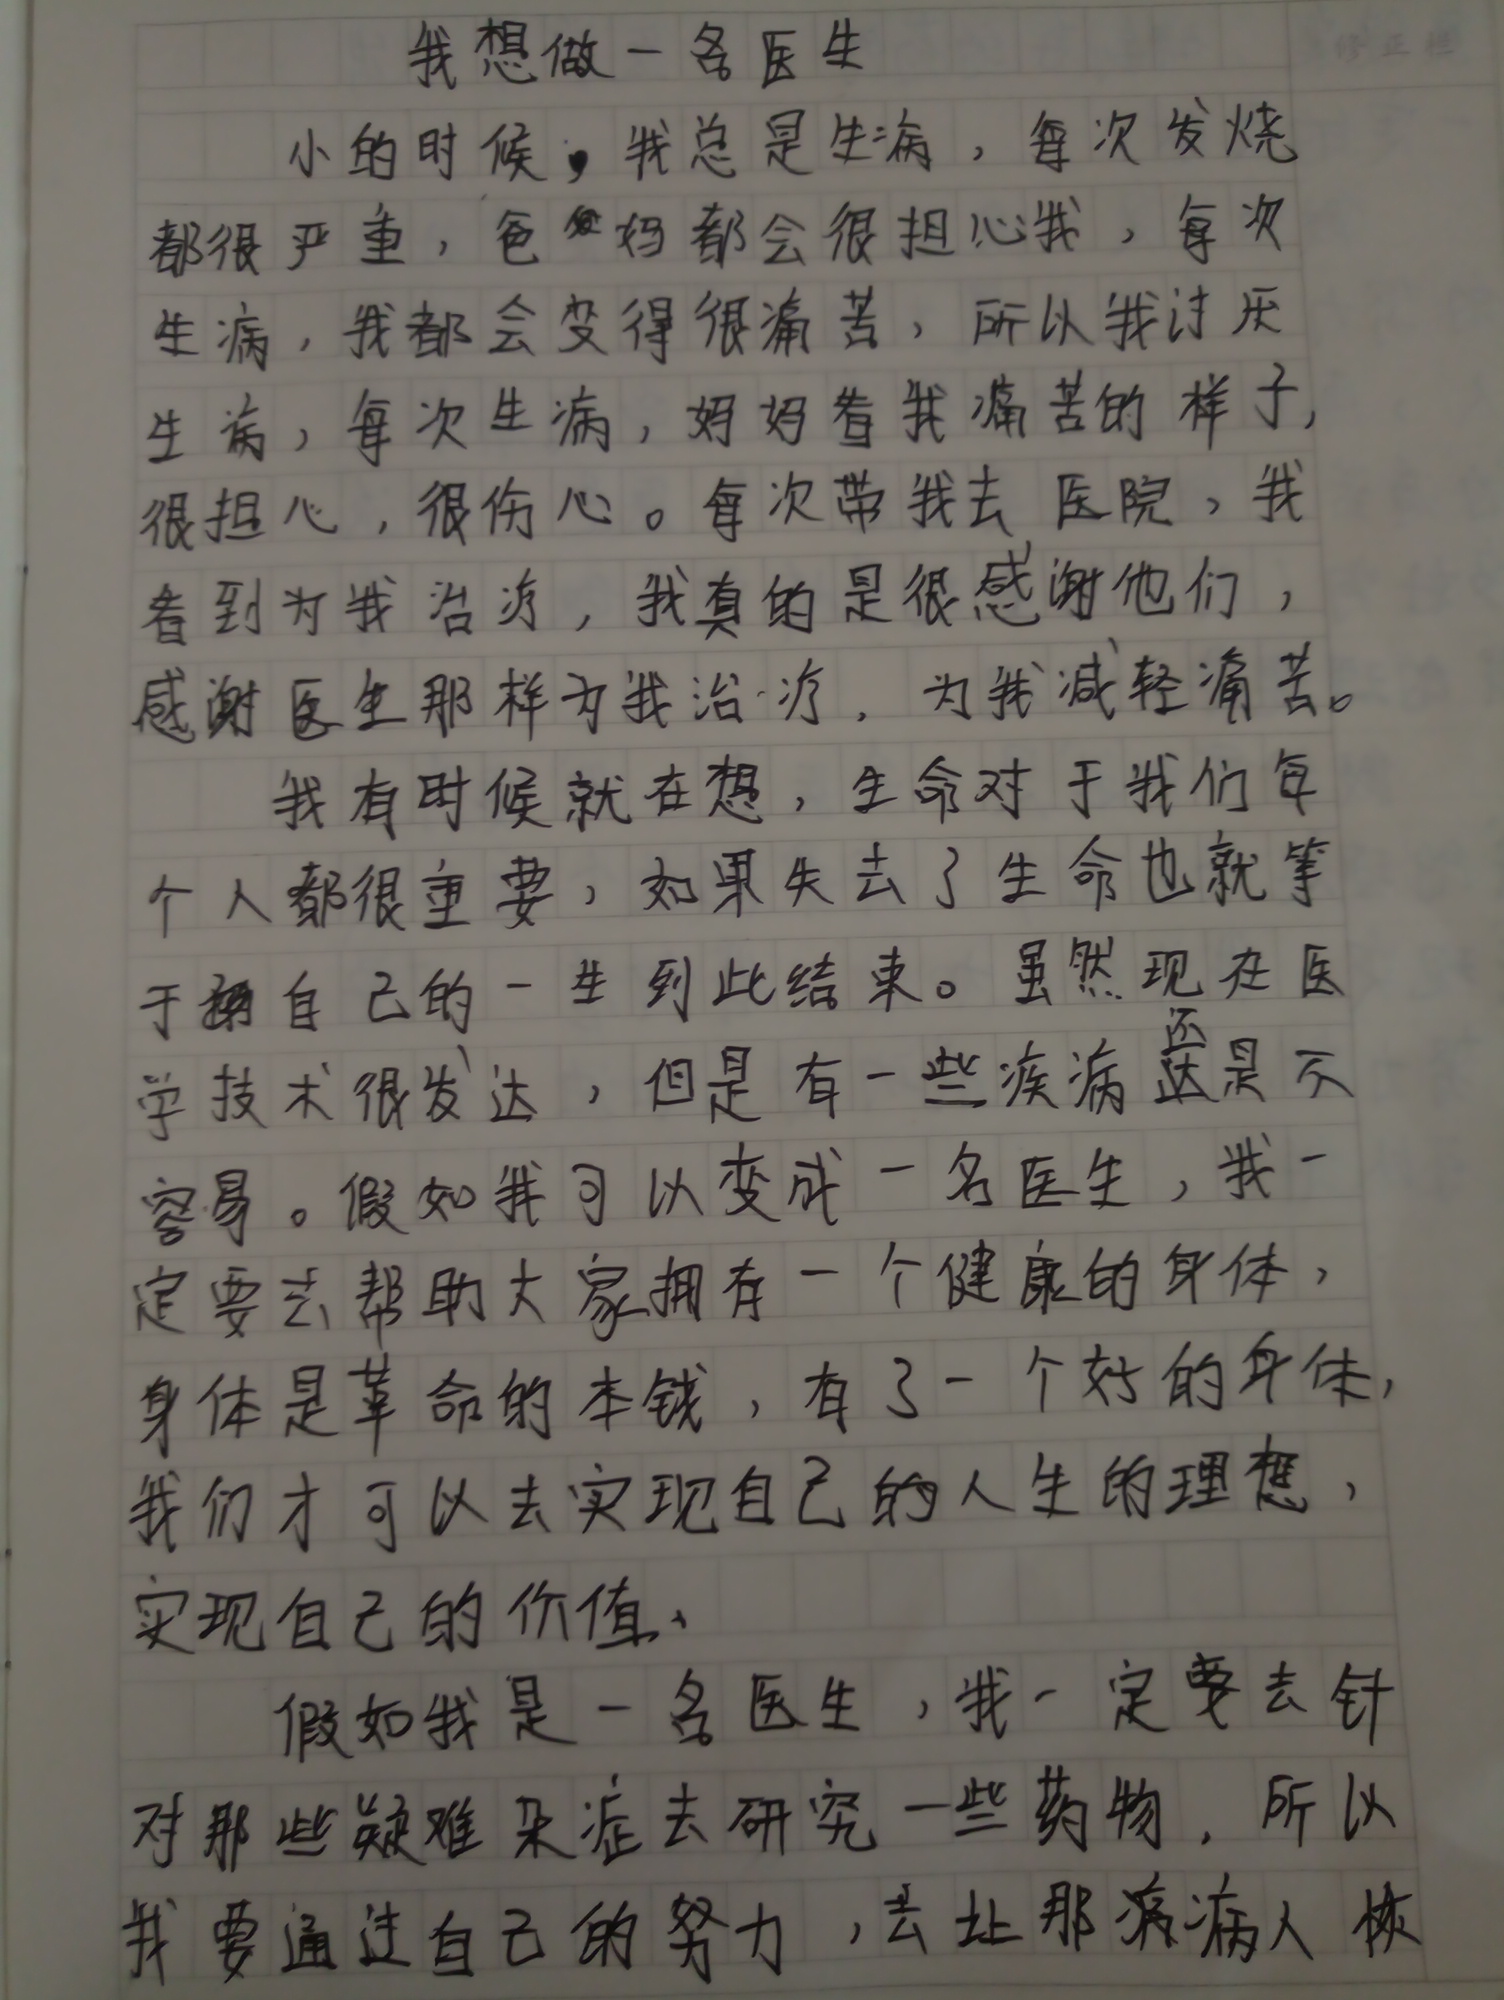 我想做一名医生
修正栏
小的时候，我总是生病，每次发烧
都很严重，爸妈都会很担心我，每次
生病，我都会变得很痛苦，所以我讨厌
生病，每次生病，妈妈看我痛苦的样子，
很担心，很伤心。每次带我去医院，我
看到为我治疗，我真的是很感谢他们，
感谢医生那样为我治疗，为我减轻痛苦。
我有时候就在想，生命对于我们每
个人都很重要，如果失去了生命也就等
于自己的一生到此结束。虽然现在医
学技术很发达，但是有一些疾病还是不
容易。假如我可以变成一名医生，我一
定要去帮助大家拥有一个健康的身体，
身体是革命的本钱，有了一个好的身体，
我们才可以去实现自己的人生的理想，
实现自己的价值、
假如我是一名医生，我一定要去针
对那些疑难杂症去研究一些药物，所以
我要通过自己的努力，去让那病人恢